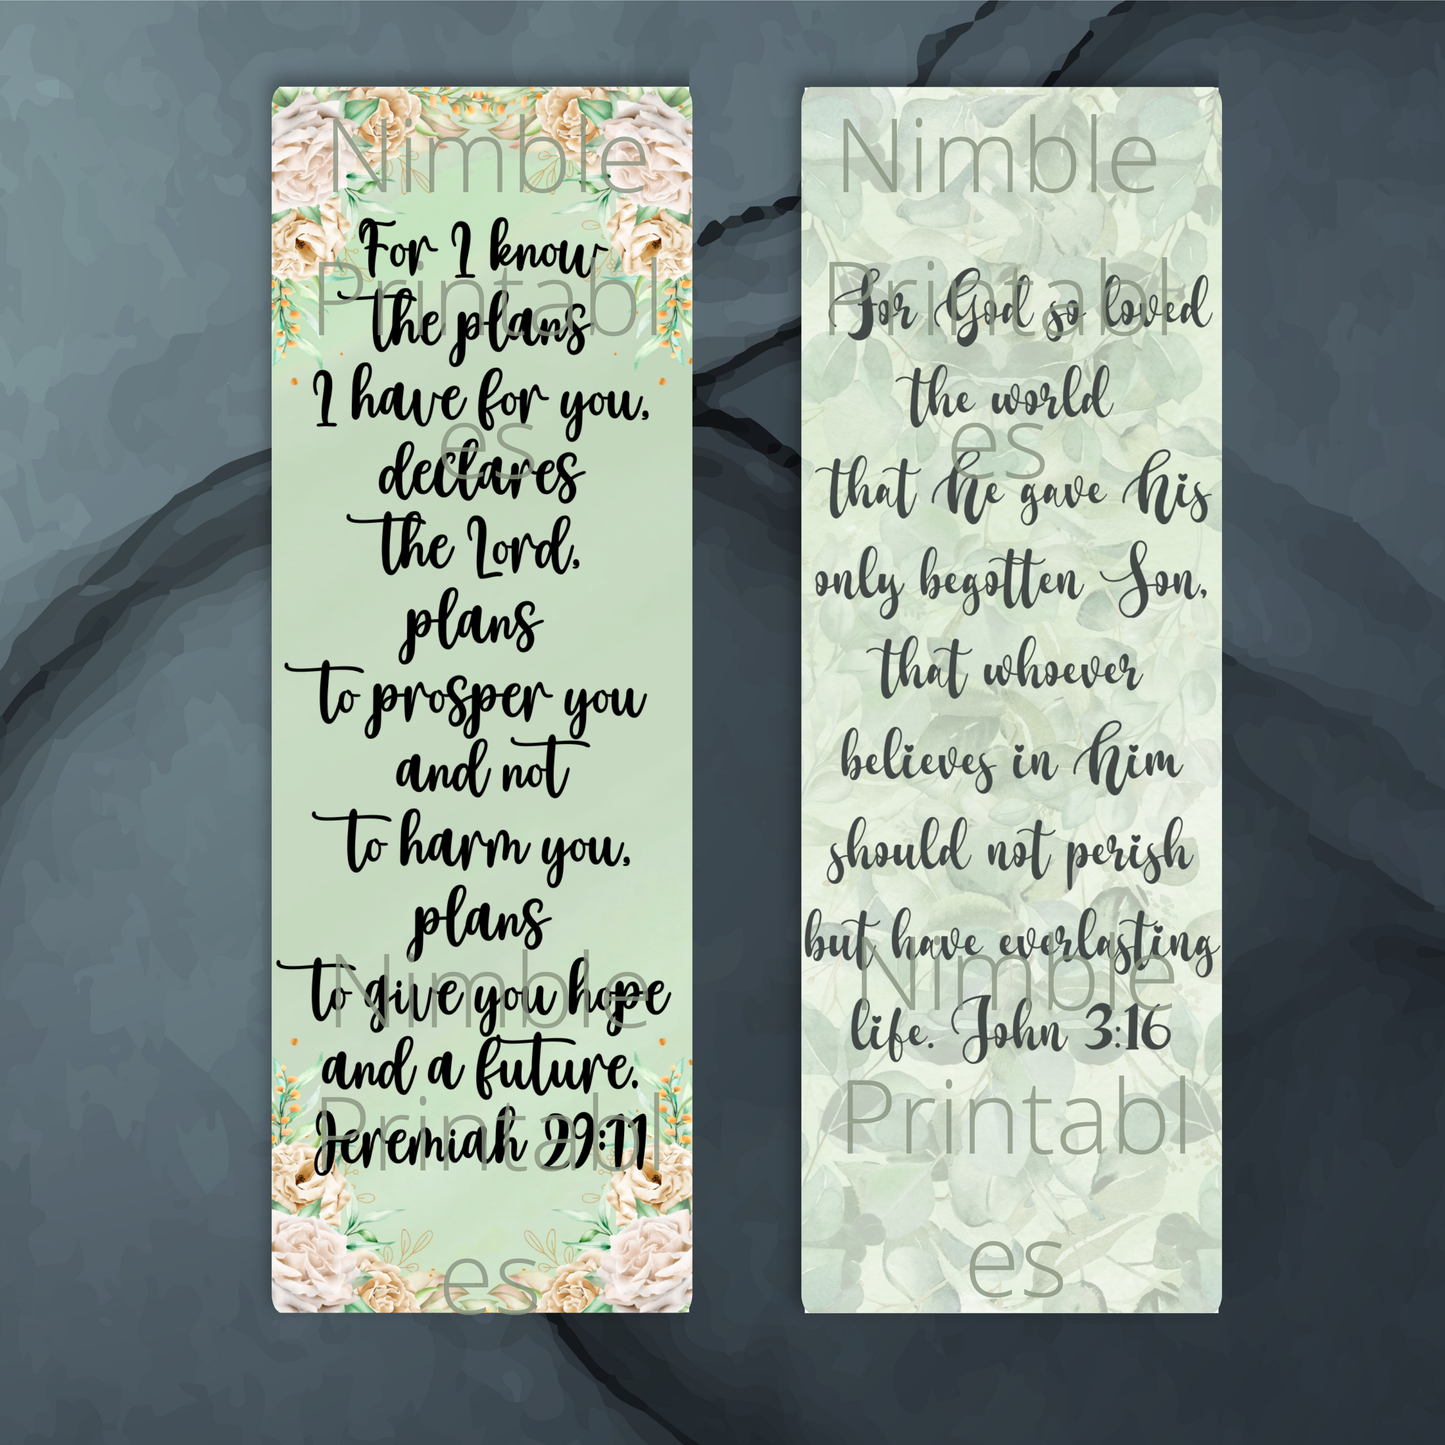 Nimble
Printabl
es
For I know
the plans
I have for you,
declares
the Lord,
plans
to prosper you
and not
to harm you,
plans
to give you hope
and a future.
Jeremiah 29:11
Nimble
Printabl
es
Nimble
Printabl
es
For God so loved
the world
that He gave His
only begotten Son,
that whoever
believes in Him
should not perish
but have everlasting
life. John 3:16
Nimble
Printabl
es